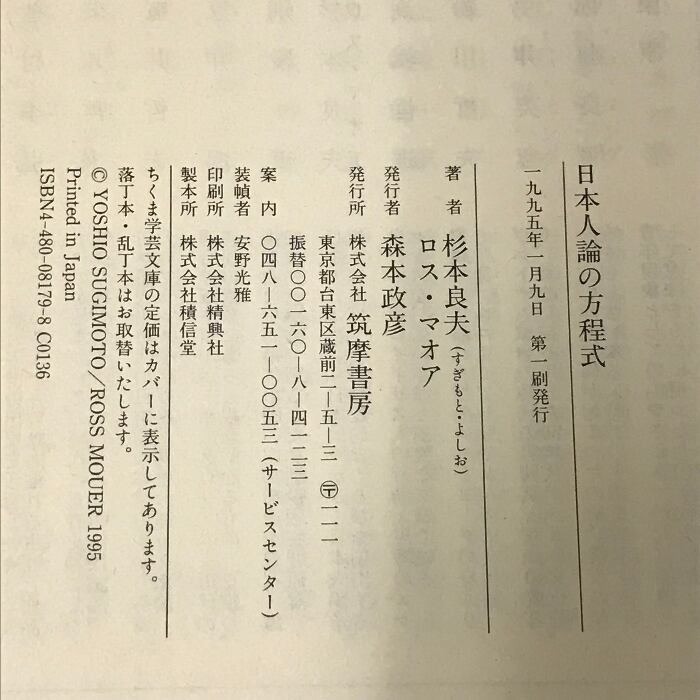 日本人論の方程式
一九九五年一月九日　第一刷発行
著　者　杉本良夫（すぎもと・よしお）
ロス・マオア
発行者　森本政彦
発行所　株式会社 筑摩書房
東京都台東区蔵前二―五―三　〒一一一
振替〇〇一六〇―八―四一二三
案　内　〇四八―六五一―〇〇五三（サービスセンター）
装幀者　安野光雅
印刷所　株式会社精興社
製本所　株式会社積信堂
ちくま学芸文庫の定価はカバーに表示してあります。
落丁本・乱丁本はお取替いたします。
© YOSHIO SUGIMOTO/ROSS MOUER 1995
Printed in Japan
ISBN4-480-08179-8 C0136